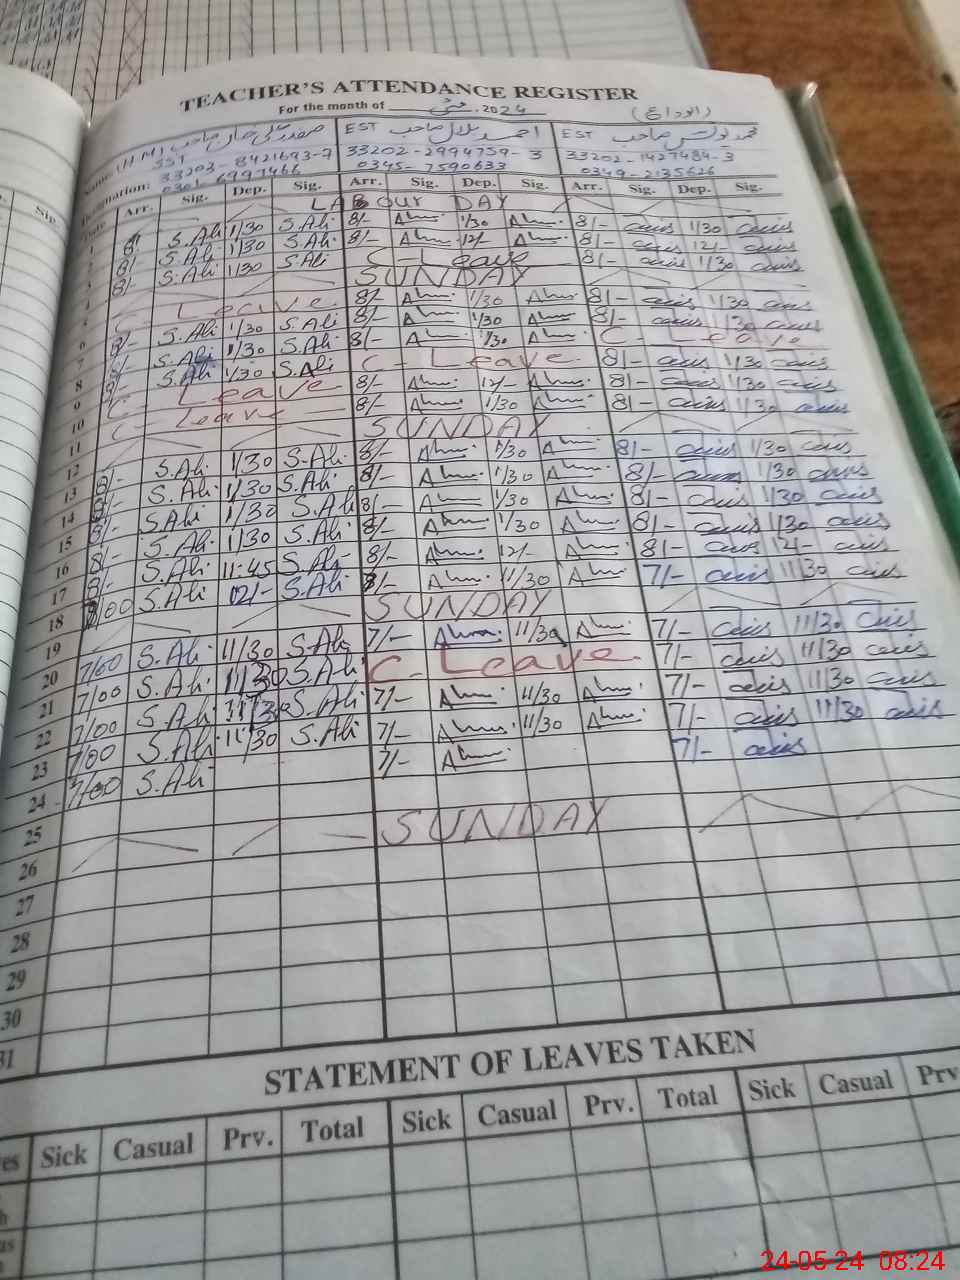 TEACHER'S ATTENDANCE REGISTER
For the month of مئی .2024 (الوداع)
Name: (HM) صفدر علی خان صاحب EST احمد بلال صاحب EST محمد یونس صاحب
SST 33202-2994759-3 33202-1427484-3
Designation: 33203-8421693-7 0345-7590633 0349-2135626
0301-6997466
Arr. Sig. Dep. Sig. Arr. Sig. Dep. Sig. Arr. Sig. Dep. Sig.
1 LABOUR DAY
2 8/- S.Ali 1/30 S.Ali 8/- 1/30 8/- 1/30
3 8/- S.Ali 1/30 S.Ali 8/- 12/- 8/- 12/-
4 8/- S.Ali 1/30 S.Ali C-Leave 8/- 1/30
5 SUNDAY
6 C-Leave 8/- 1/30 8/- 1/30
7 8/- S.Ali 1/30 S.Ali 8/- 1/30 8/- 1/30
8 8/- S.Ali 1/30 S.Ali 8/- 1/30 C-Leave
9 8/- S.Ali 1/30 S.Ali C-Leave 8/- 1/30
10 C-Leave 8/- 12/- 8/- 1/30
11 C-Leave 8/- 1/30 8/- 1/30
12 SUNDAY
13 8/- S.Ali 1/30 S.Ali 8/- 1/30 8/- 1/30
14 8/- S.Ali 1/30 S.Ali 8/- 1/30 8/- 1/30
15 8/- S.Ali 1/30 S.Ali 8/- 1/30 8/- 1/30
16 8/- S.Ali 1/30 S.Ali 8/- 1/30 8/- 1/30
17 8/- S.Ali 11:45 S.Ali 8/- 12/- 8/- 12/-
18 8/00 S.Ali 12/- S.Ali 8/- 11/30 7/- 11/30
19 SUNDAY
20 7/00 S.Ali 11/30 S.Ali 7/- 11/30 7/- 11/30
21 7/00 S.Ali 11/30 S.Ali C-Leave 7/- 11/30
22 7/00 S.Ali 11/30 S.Ali 7/- 11/30 7/- 11/30
23 7/00 S.Ali 11/30 S.Ali 7/- 11/30 7/- 11/30
24 7/00 S.Ali 7/- 7/-
25
26 SUNDAY
27
28
29
30
31
STATEMENT OF LEAVES TAKEN
Sick Casual Prv. Total Sick Casual Prv. Total Sick Casual Prv
24-05-24 08:24